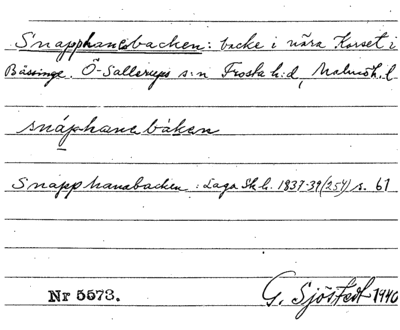 Snapphanebacken: backe i nära Korset i
Bässinge. Ö-Sallerups s:n Frosta h:d, Malmöh. l
snáphanebaken
Snapphanabacken: Laga Sk. h. 1837-39 (254) s. 61
Nr 5573. G. Sjöstedt 1940